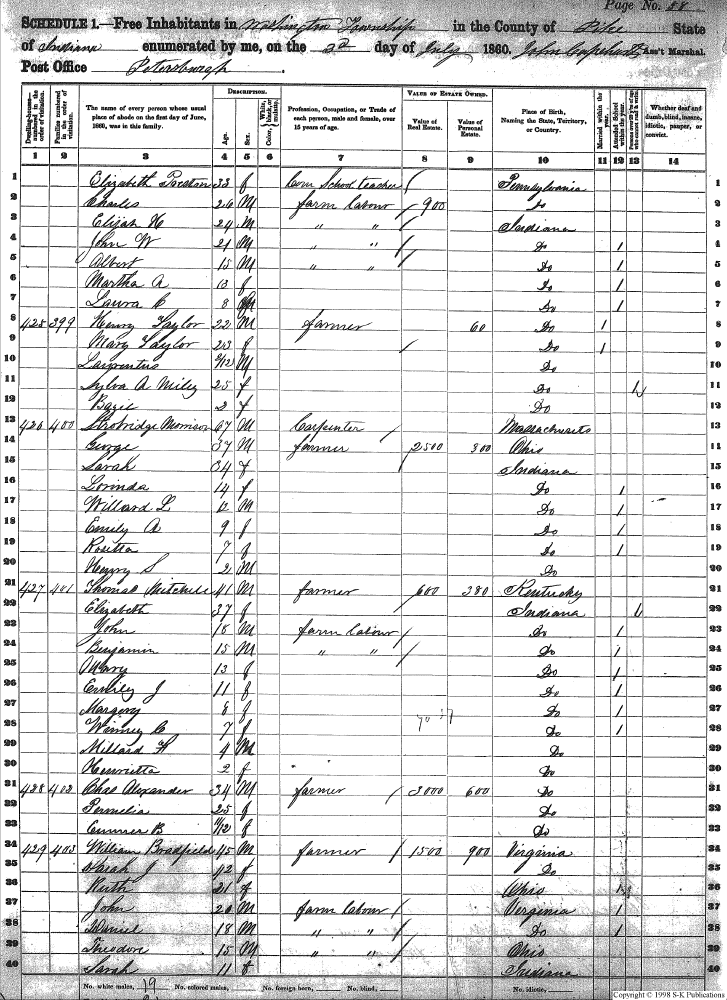 Page No. 58
SCHEDULE 1.—Free Inhabitants in Washington Township in the County of Pike State
of Indiana enumerated by me, on the 2d day of July 1860. John Ass't Marshal.
Post Office Petersburgh.
Dwelling-houses numbered in the order of visitation.
Families numbered in the order of visitation.
The name of every person whose usual place of abode on the first day of June, 1860, was in this family.
DESCRIPTION.
Age.
Sex.
Color, White, black, or mulatto.
Profession, Occupation, or Trade of each person, male and female, over 15 years of age.
VALUE OF ESTATE OWNED.
Value of Real Estate.
Value of Personal Estate.
Place of Birth, Naming the State, Territory, or Country.
Married within the year.
Attended School within the year.
Whether deaf and dumb, blind, insane, idiotic, pauper, or convict.
1 2 3 4 5 6 7 8 9 10 11 12 13 14
1 Elizabeth 33 f Com School teacher / Pennsylvania 1
2 Charles 26 M farm labour / 900 Do 2
3 Elijah H 24 M " " / Indiana 3
4 John W 21 M " " / Do / 4
5 Albert 15 M " " / Do / 5
6 Martha A 13 f Do / 6
7 Laura C 8 Do / 7
8 425 399 Henry Taylor 22 M farmer 60 Do / 8
9 Mary Taylor 23 f / Do / 9
10 /12 M Do 10
11 Sylva A Miley 25 f Do 11
12 2 f Do 12
13 426 400 Strobridge Morrison 67 M Carpenter / Massachusets 13
14 George 37 M farmer / 2500 300 Ohio 11
15 Sarah 34 f Indiana 15
16 Lorinda 14 f Do / 16
17 Willard L 12 M Do / 17
18 Emily A 9 f Do / 18
19 Rosetta 7 f Do / 19
20 Henry S 2 M Do 20
21 427 401 Thomas Mitchell 41 M farmer / 600 380 Kentucky 21
22 Elizabeth 37 f Indiana 22
23 John 18 M farm labour / Do / 23
24 Benjamin 15 M " " / Do / 24
25 Mary 13 f Do / 25
26 Emily J 11 f Do / 26
27 Margery 8 f Do / 27
28 C 7 f Do / 28
29 Millard F 4 M Do 29
30 Henrietta 2 f Do 30
31 428 402 Chas Alexander 34 M farmer / 3000 600 Do 31
32 Permelia 25 f Do 32
33 B /12 f Do 33
34 429 403 William Bradfield 45 M farmer / 1500 900 Virginia 34
35 Sarah J 42 f Do 35
36 Ruth 21 f Ohio 36
37 John 20 M farm labour / Virginia / 37
38 Daniel 18 M " " / Do / 38
39 Theodore 15 M " " / Ohio 39
40 Sarah 11 f Indiana 40
No. white males, 19 No. colored males, No. foreign born, No. blind, No. idiotic,
Copyright © 1998 S-K Publications